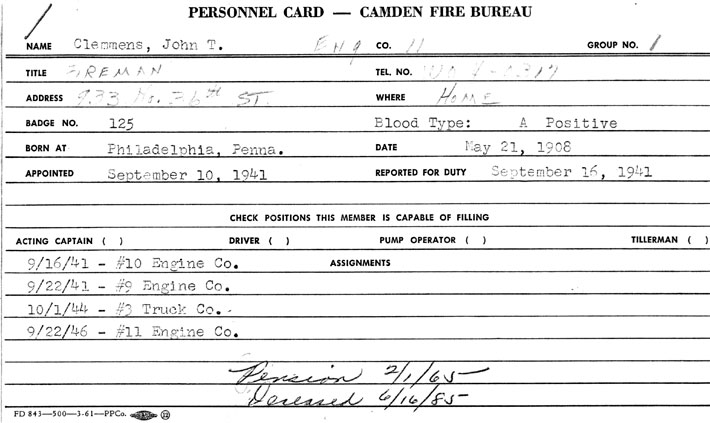 PERSONNEL CARD — CAMDEN FIRE BUREAU
NAME Clemmens, John T. Eng CO. 11 GROUP NO. 1
TITLE FIREMAN TEL. NO.
ADDRESS 933 No. 36th ST. WHERE Home
BADGE NO. 125 Blood Type: A Positive
BORN AT Philadelphia, Penna. DATE May 21, 1908
APPOINTED September 10, 1941 REPORTED FOR DUTY September 16, 1941
CHECK POSITIONS THIS MEMBER IS CAPABLE OF FILLING
ACTING CAPTAIN ( ) DRIVER ( ) PUMP OPERATOR ( ) TILLERMAN ( )
9/16/41 - #10 Engine Co. ASSIGNMENTS
9/22/41 - #9 Engine Co.
10/1/44 - #3 Truck Co.
9/22/46 - #11 Engine Co.
Pension 2/1/65
Deceased 6/16/85
FD 843—500—3-61—PPCo.